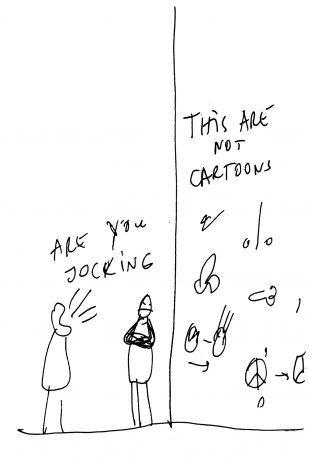 THIS ARE
NOT
CARTOONS
ARE YOU
JOCKING